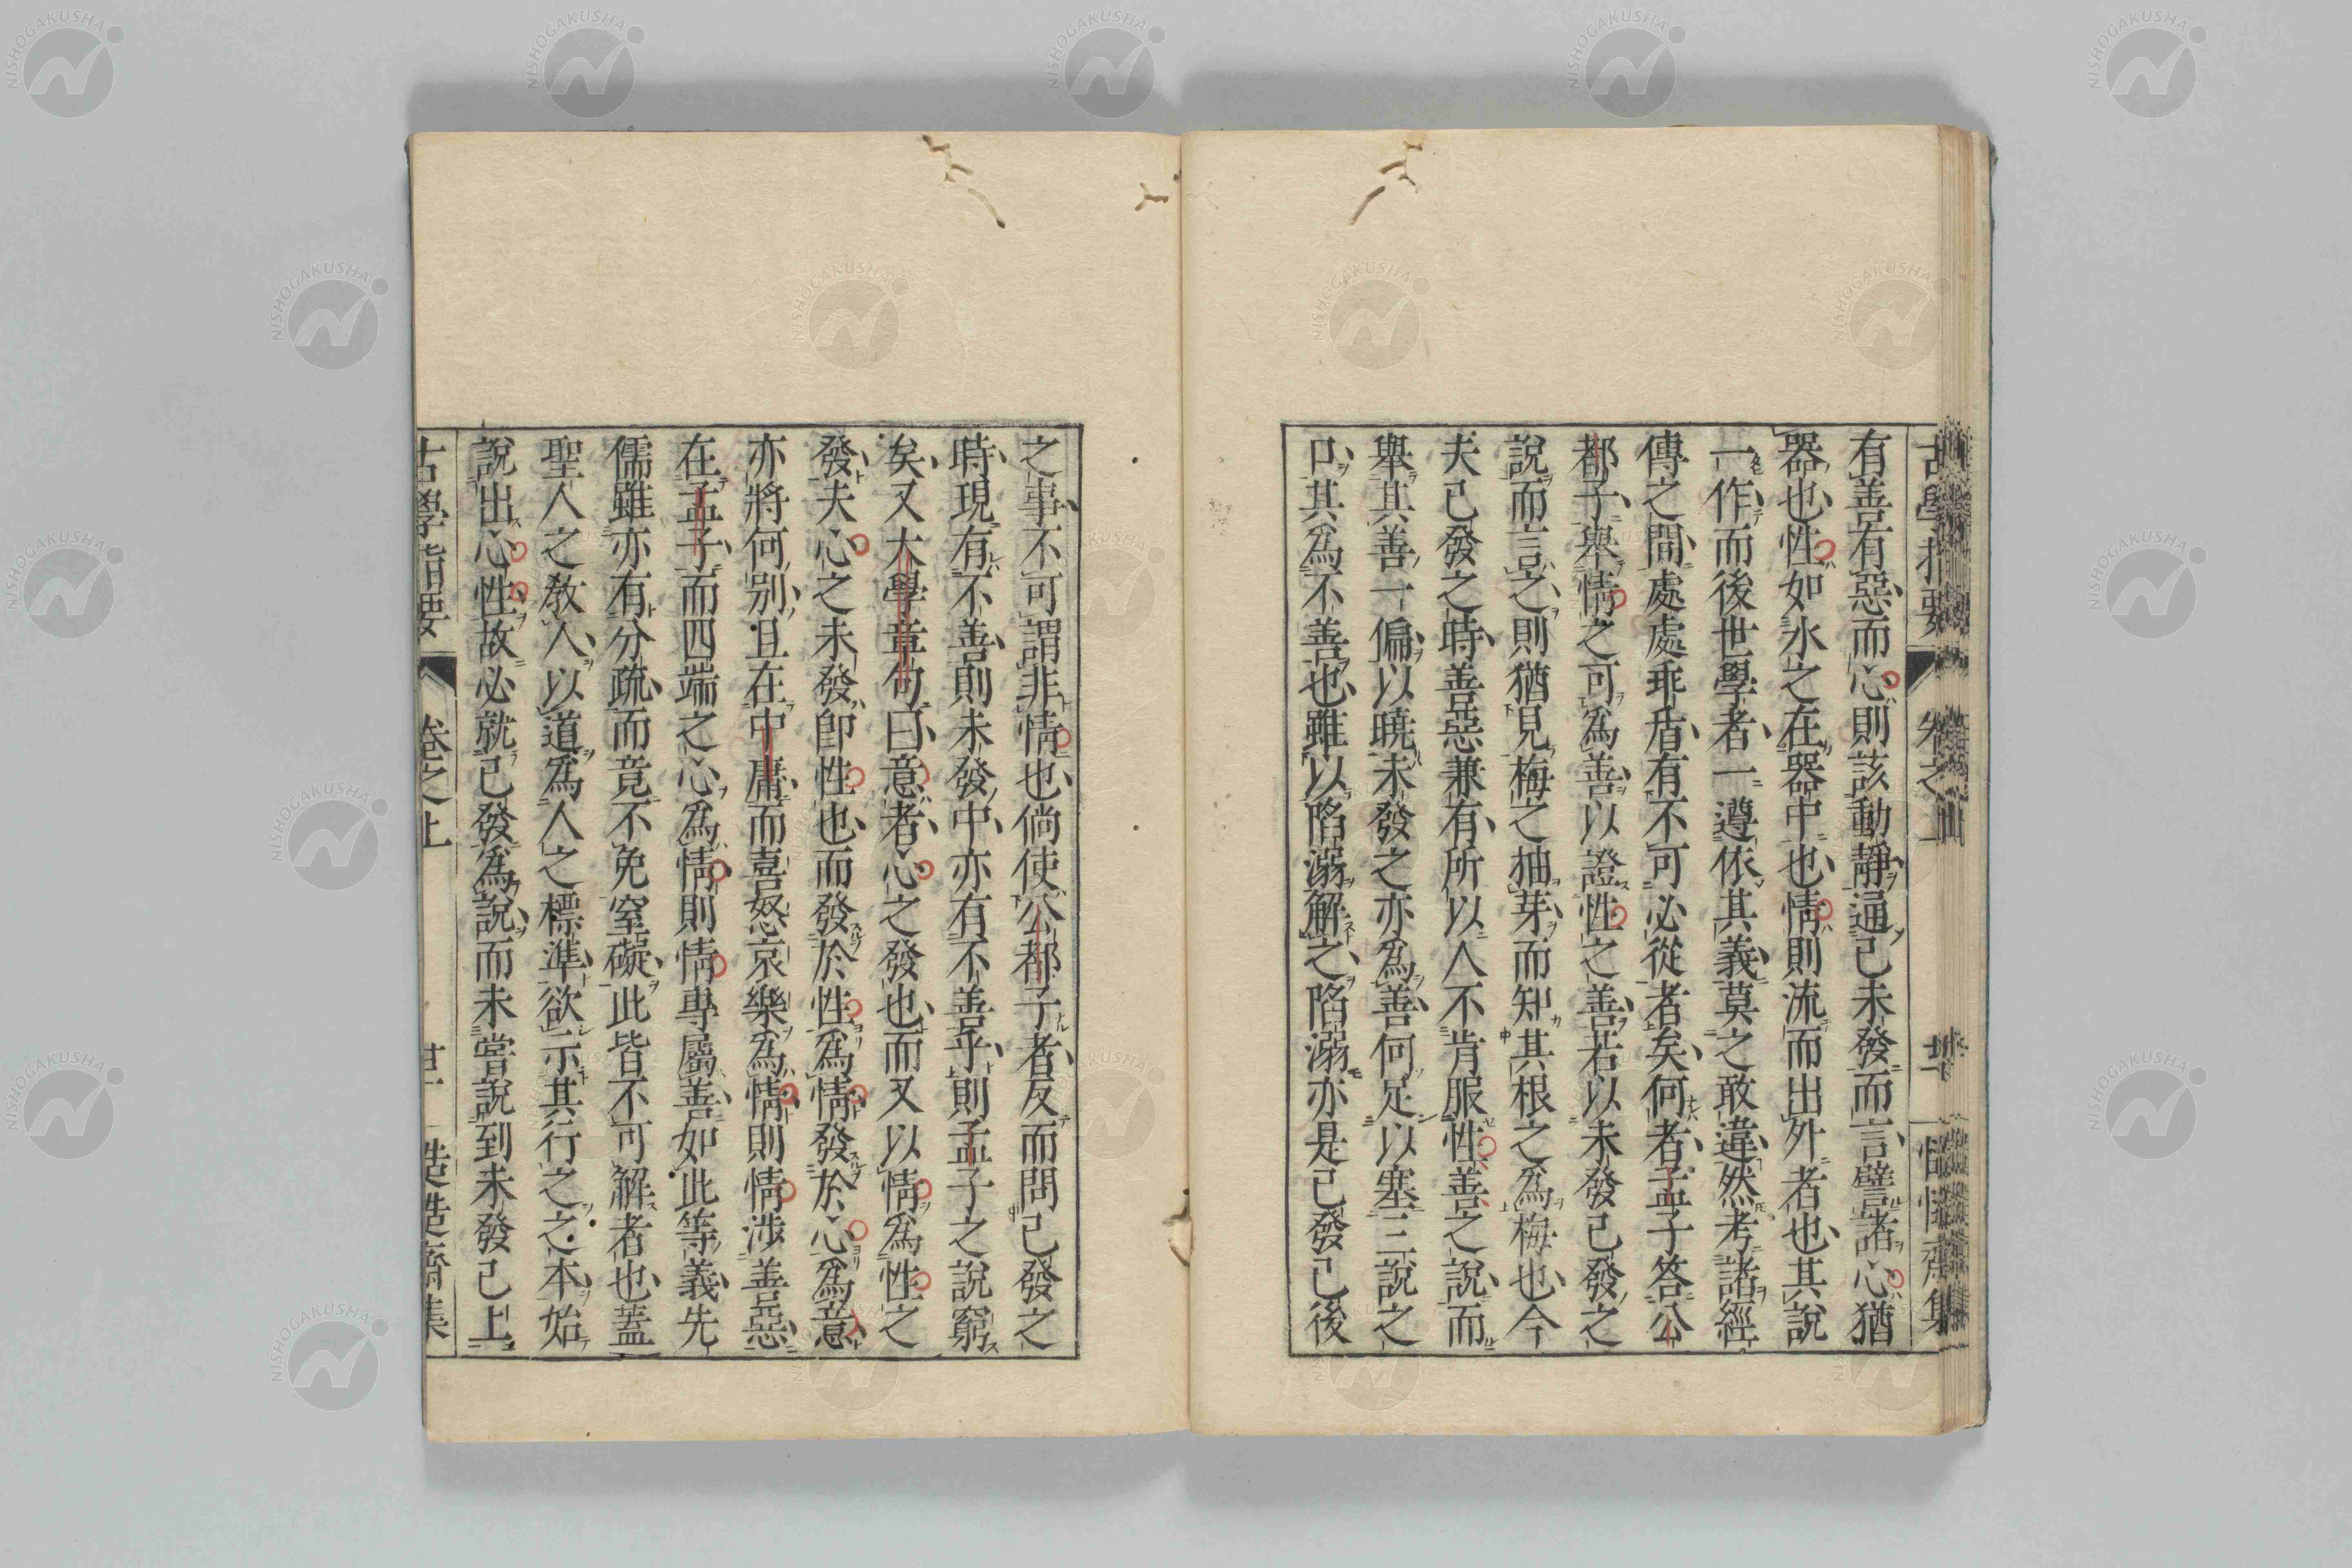 有善有惡而心則該動靜通已未發而言譬諸心猶
器也性如水之在器中也情則流而出外者也其說
一作而後世學者一遵依其義莫之敢違然考諸經
傳之間處處乖盾有不可必從者矣何者孟子答公
都子舉情之可爲善以證性之善若以未發已發之
說而言之則猶見梅之抽芽而知其根之爲梅也今
夫已發之時善惡兼有所以人不肯服性善之說而
舉其善一偏以曉未發之亦爲善何足以塞三說之
口其爲不善也雖以陷溺解之陷溺亦是已發已後
之事不可謂非情也倘使公都子者反而問已發之
時現有不善則未發中亦有不善乎則孟子之說窮
矣又大學章句曰意者心之發也而又以情爲性之
發夫心之未發卽性也而發於性爲情發於心爲意
亦將何別且在中庸而喜怒哀樂爲情則情涉善惡
在孟子而四端之心爲情則情專屬善如此等義先
儒雖亦有分疏而竟不免窒礙此皆不可解者也蓋
聖人之敎人以道爲人之標準欲示其行之之本始
說出心性故必就已發爲說而未嘗說到未發已上
古學指要 卷之上 慥慥齋集
NISHOGAKUSHA